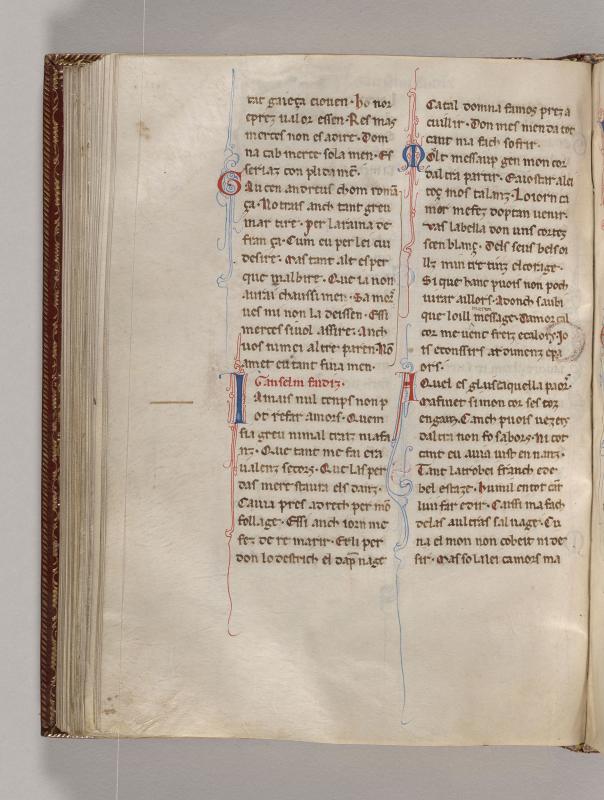 tat gaieça iouen · ho nor
eprez ualor essen · Res mas
merces non es adire · Dom
na cab merce sola men · Es
serlaz con pluia mē.
Sau cen andreus chom romā
ça · No trais anch tant greu
mar tire · per la raina de
fran ça · Cum eu per lei cui
desire · Mas tant alt esper
que mal bire · Que ia non
aurai chaussimen · Sa mor
ues mi non la deissen · Essi
merces siuol assire · anch
uos num ei altre paren · Nō
amet eu tant fura men ·
Ganselm faidiz ·
Iamais nul temps non p
ot refar amors · Quem
sia greu nimal traiz niafa
nz · Que tant me fai era
ualenz secors · Que las per
das mere staura els danz ·
Caura pres adrech per mō
follage · Essi anch iorn me
fez de re marir · Erli per
don lo destrich el dap nage
Catal domna famos prez a
cuillir · Don mes mendatot
cant ma fach sofrir.
Molt messaup gen mon cor
dal tra partir · Eaiostar alei
toz mos talanz · Lo iorn ca
mor mefez doptan uenir ·
vas la bella don uns cortes
sem blanz · Dels seus bels oi
llz mun tre tuiz el corage ·
Si que hanc puois non poch
uirar aillors · Adonch saubi
que loill message · Damor cal
meron
cor me uenc freiz ecalors · Io
is econssirs ardimenz epa
ors ·
Aquel es gl aisaquella paor
Mafinet si mon cor ses toz
engans · Canch puois uezers
dal tra non fo sabors · Ni cot
cant eu auia uist en nanz ·
Tant la trobei franch ede
bel estage · humil entot car
luu far edir · Caissi ma fach
delas aultras sal uage · Cu
na el mon non cobeit ni de
sir · Mas so la lei camors ma